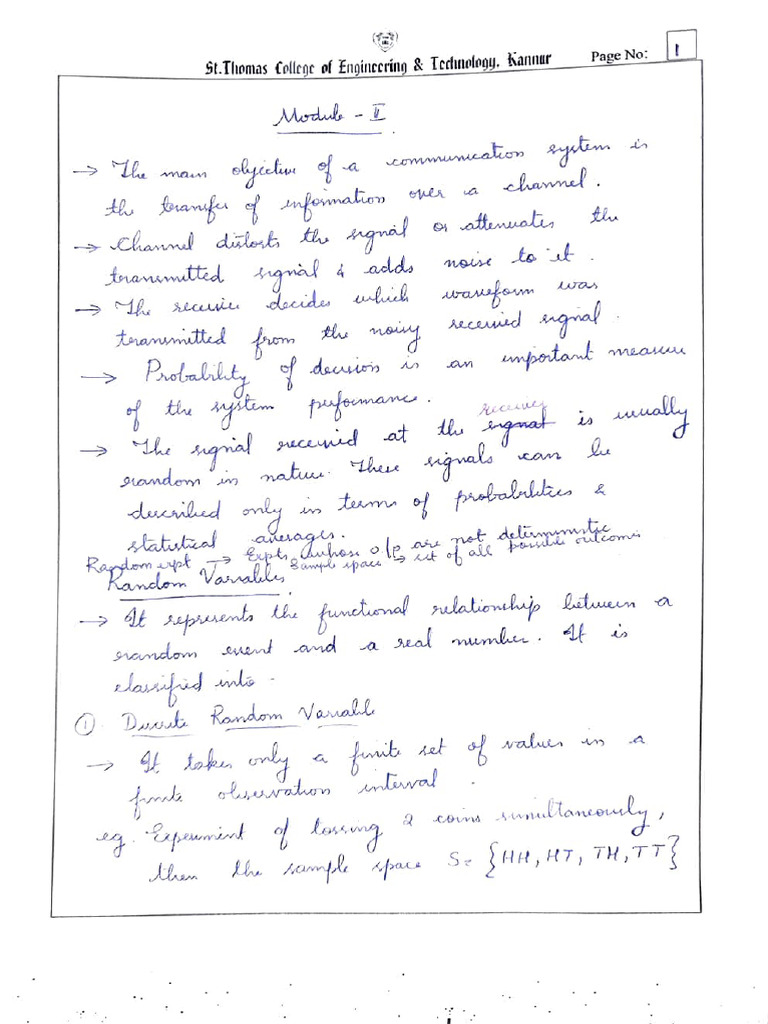 St.Thomas College of Engineering & Technology, Kannur Page No: 1
Module - II
→ The main objective of a communication system is
the transfer of information over a channel.
→ Channel distorts the signal or attenuates the
transmitted signal & adds noise to it.
→ The receiver decides which waveform was
transmitted from the noisy received signal.
→ Probability of decision is an important measure
of the system performance.
receiver
→ The signal received at the signal is usually
random in nature. These signals can be
described only in terms of probabilities &
statistical averages.
Random expt → Expts whose o/p are not deterministic
Sample space → set of all possible outcomes
Random Variables
→ It represents the functional relationship between a
random event and a real number. It is
classified into -
① Discrete Random Variable
→ It takes only a finite set of values in a
finite observation interval.
eg. Experiment of tossing 2 coins simultaneously,
then the sample space S = {HH, HT, TH, TT}